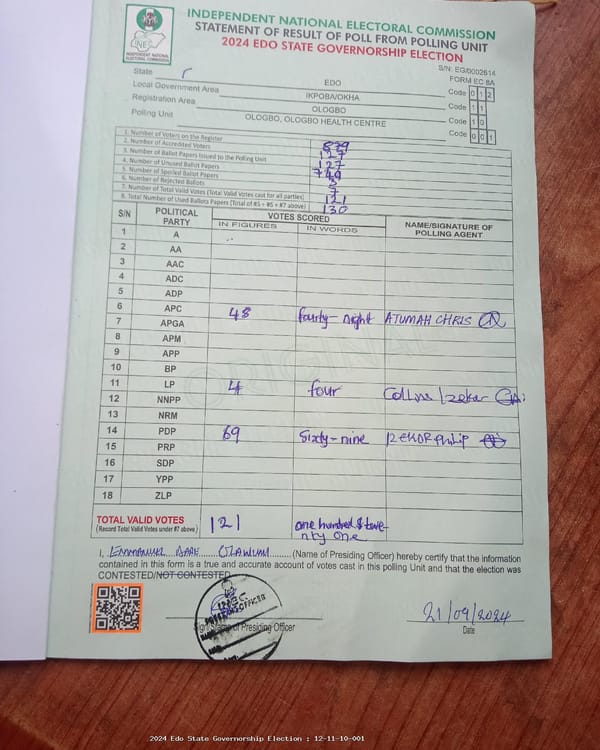 INDEPENDENT NATIONAL ELECTORAL COMMISSION
STATEMENT OF RESULT OF POLL FROM POLLING UNIT
2024 EDO STATE GOVERNORSHIP ELECTION
INEC
INDEPENDENT NATIONAL ELECTORAL COMMISSION
S/N: EG/0002614
FORM EC 8A
State EDO Code 012
Local Government Area IKPOBA/OKHA Code 11
Registration Area OLOGBO Code 10
Polling Unit OLOGBO, OLOGBO HEALTH CENTRE Code 001
1. Number of Voters on the Register 879
2. Number of Accredited Voters 127
3. Number of Ballot Papers Issued to the Polling Unit
4. Number of Unused Ballot Papers
5. Number of Spoiled Ballot Papers
6. Number of Rejected Ballots
7. Number of Total Valid Votes (Total Valid Votes cast for all parties) 121
8. Total Number of Used Ballots Papers (Total of #5 + #6 + #7 above) 130
S/N POLITICAL PARTY VOTES SCORED NAME/SIGNATURE OF POLLING AGENT
IN FIGURES IN WORDS
1 A
2 AA
3 AAC
4 ADC
5 ADP
6 APC 48 fourty-night ATUMAH CHRIS
7 APGA
8 APM
9 APP
10 BP
11 LP 4 four Collins
12 NNPP
13 NRM
14 PDP 69 Sixty-nine Philip
15 PRP
16 SDP
17 YPP
18 ZLP
TOTAL VALID VOTES 121 one hundred & twe
(Record Total Valid Votes under #7 above) nty one
ORIGINAL
I, EMMANUEL (Name of Presiding Officer) hereby certify that the information
contained in this form is a true and accurate account of votes cast in this polling Unit and that the election was
CONTESTED/NOT CONTESTED
INEC
PRESIDING OFFICER
Sign/Stamp of Presiding Officer
21/09/2024
Date
2024 Edo State Governorship Election : 12-11-10-001